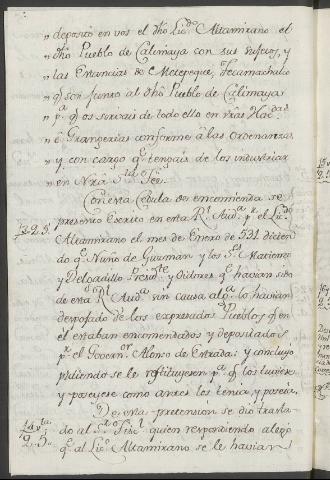 " deposito en vos el dho Licdo Altamirano el
" dho Pueblo de Calimaya con sus sujetos, y
" las Estancias de Metepeque, Tecamachulco
" q son junto al dho Pueblo de Calimaya
" pa q os sirvais de todo ello en vras Hacdas
" é Grangerias conforme â las Ordenanzas
" y con cargo qe tengais de los industriar
" en Nra Sta Fee.
Con esta Cedula de encomienda se
presentó Escrito en esta Rl Auda pr el Licdo
Altamirano el mes de Enero de 531 dicien
do qe Nuño de Guzman y los Ss Matienzo
y Delgadillo Presidte y Oidores qe havian sido
de esta Rl Auda sin causa alga lo havian
despojado de los expresados Pueblos q en
el estaban encomendados y depositados
pr el Governr Alonso de Estrada; y concluyó
pidiendo se le restituyesen pa q los tuviese
y poseyese como antes los tenia y poseia.
De esta pretension se dio trasla
do al Sr Fiscl quien respondiendo alegó
qe al Licdo Altamirano se le havian
1323.